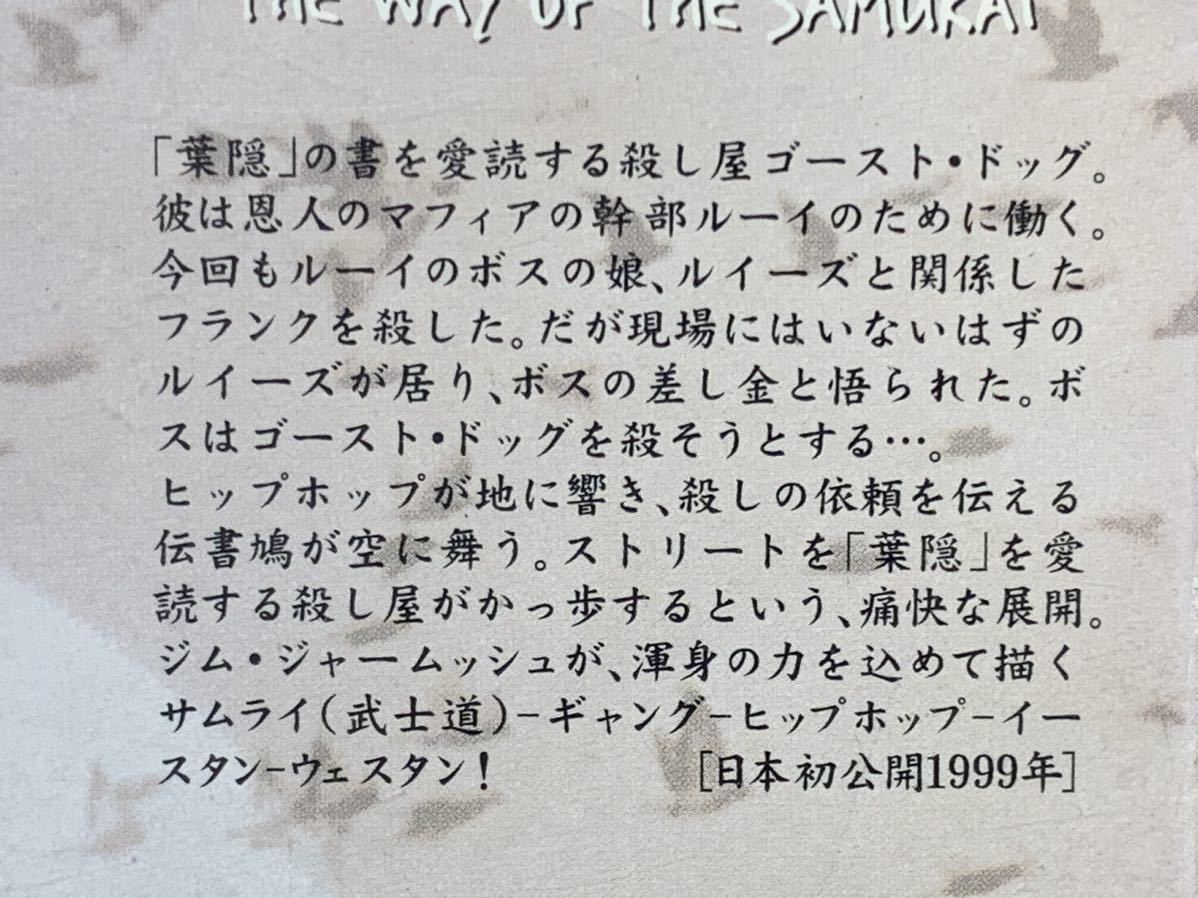 THE WAY OF THE SAMURAI
「葉隠」の書を愛読する殺し屋ゴースト・ドッグ。
彼は恩人のマフィアの幹部ルーイのために働く。
今回もルーイのボスの娘、ルイーズと関係した
フランクを殺した。だが現場にはいないはずの
ルイーズが居り、ボスの差し金と悟られた。ボ
スはゴースト・ドッグを殺そうとする…。
ヒップホップが地に響き、殺しの依頼を伝える
伝書鳩が空に舞う。ストリートを「葉隠」を愛
読する殺し屋がかっ歩するという、痛快な展開。
ジム・ジャームッシュが、渾身の力を込めて描く
サムライ(武士道)-ギャング-ヒップホップ-イー
スタン-ウェスタン! [日本初公開1999年]